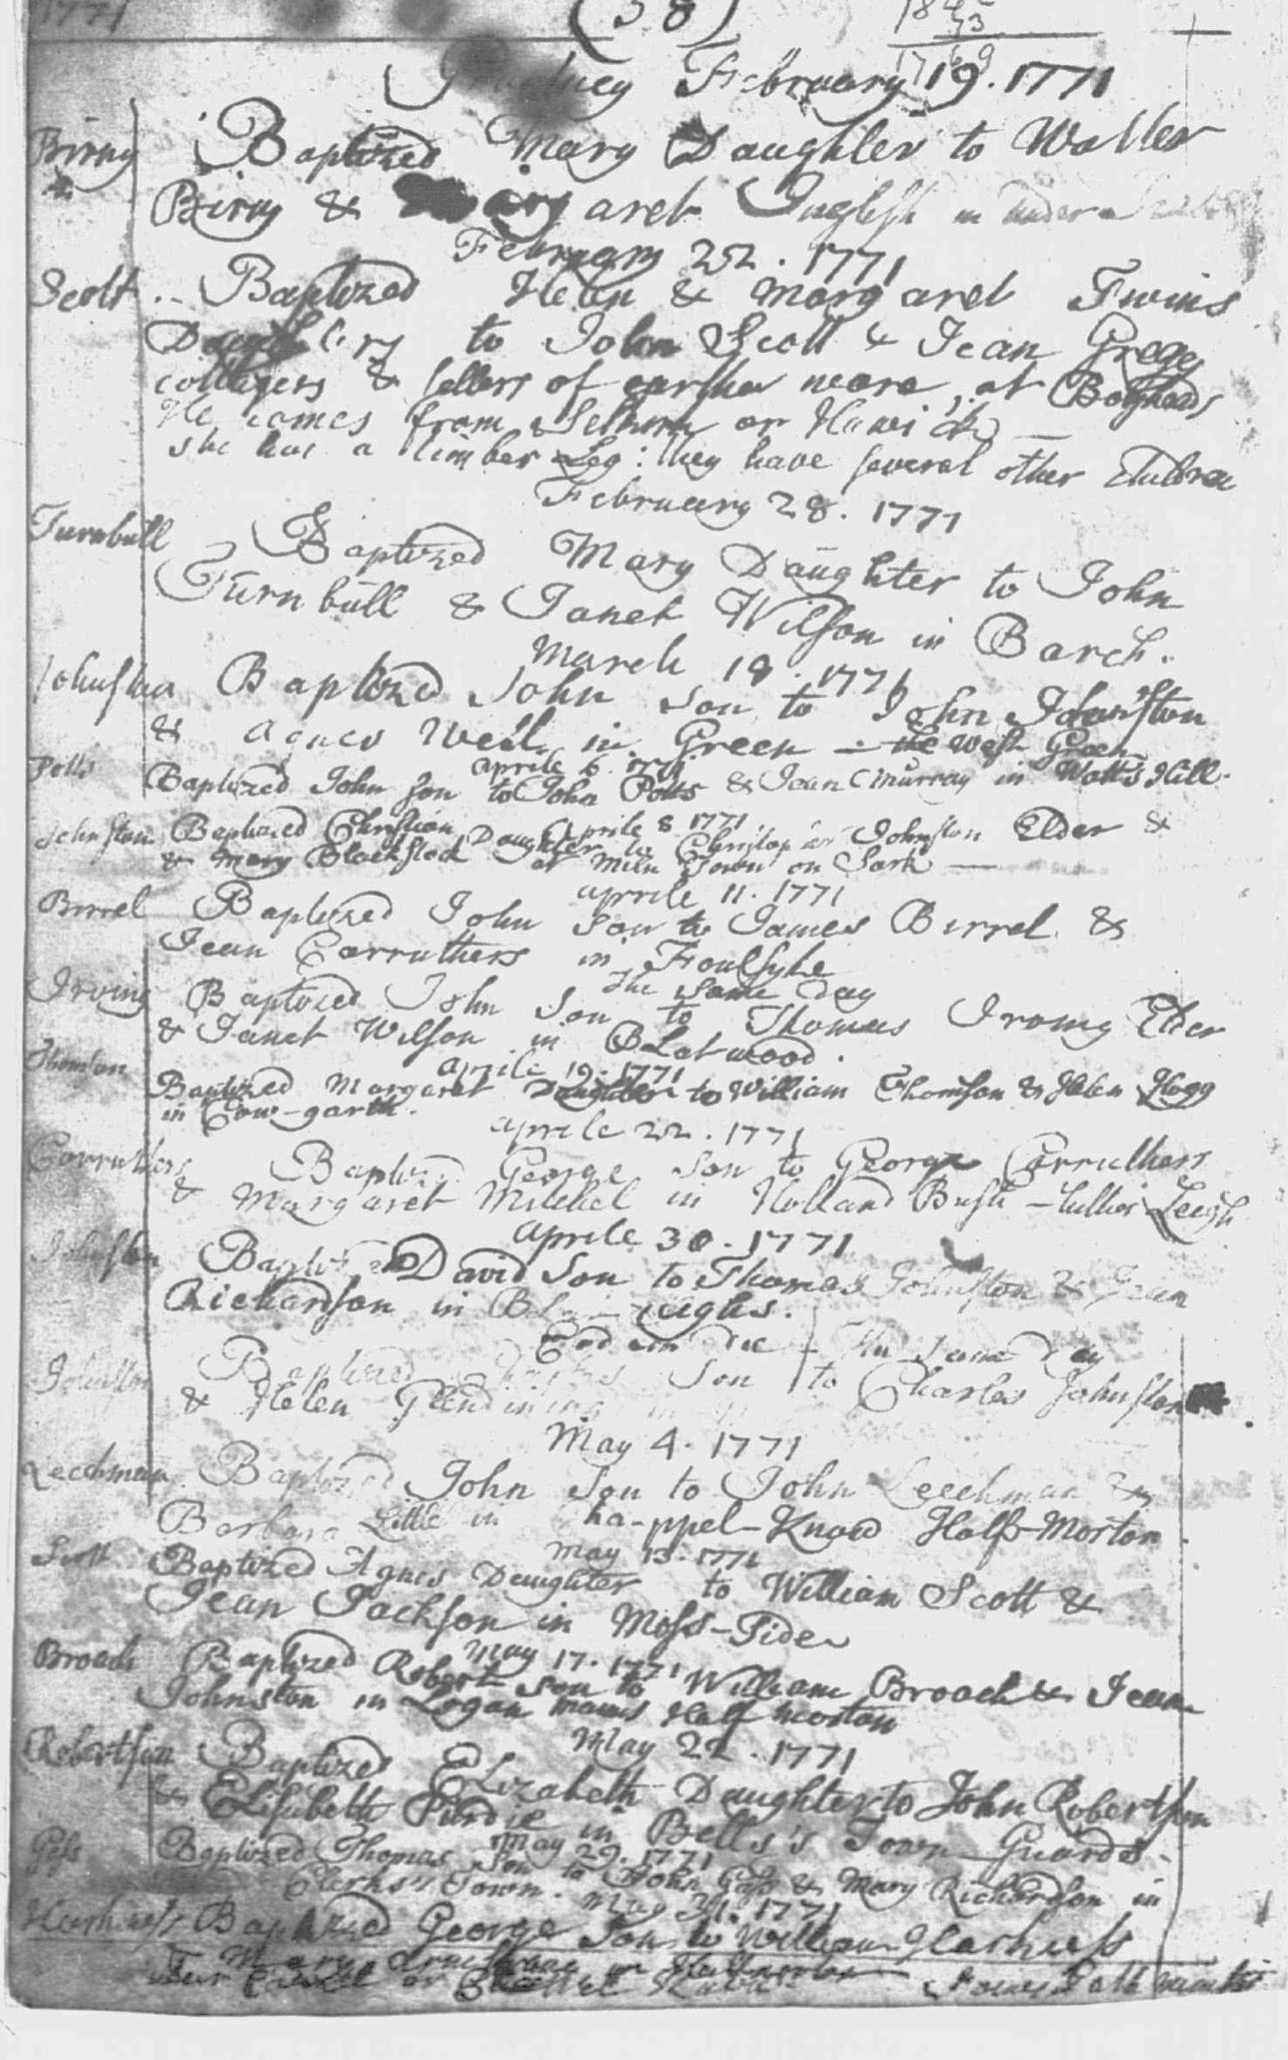 1771 (38)
February 19. 1771
Birny Baptized Mary Daughter to Walter
Birny & Margaret Inglish in
February 22. 1771
Scott Baptized Helen & Margaret Twins
Daughters to John Scott & Jean Gregg
cottagers & sellers of earthen ware, at Bogheads
He comes from Selkirk or Hawick —
she has a timber Leg: they have several other Children
February 28. 1771
Turnbull Baptized Mary Daughter to John
Turnbull & Janet Wilson in Barch.
March 18. 1771
Johnston Baptized John Son to John Johnston
& Agnes in Green — the West Green
Aprile 6. 1771
Potts Baptized John Son to John Potts & Jean Murray in Watt's Hill.
Aprile 8 1771
Johnston Baptized Christian Daughter to Christopher Johnston Elder &
& Mary Blacklock at Miln Town on Sark —
Aprile 11. 1771
Birrel Baptized John Son to James Birrel &
Jean Carruthers in Foulsyke
The Same Day
Irving Baptized John Son to Thomas Irving Elder
& Janet Wilson in Blatwood.
Aprile 19. 1771
Thomson Baptized Margaret Daughter to William Thomson & Helen Hogg
in Cow-garth.
Aprile 22. 1771
Carruthers Baptized George Son to George Carruthers
& Margaret Mitchel in Holland Bush —
Aprile 30. 1771
Johnston Baptized David Son to Thomas Johnston & Jean
Richardson in
Eodem Die — The Same Day
Johnston Baptized Son to Charles Johnston
& Helen Glendining in
May 4. 1771
Leechman Baptized John Son to John Leechman &
Barbara Little in Cha-ppel-Know Half-Morton.
May 13. 1771
Scott Baptized Agnes Daughter to William Scott &
Jean Jackson in Moss-Side
May 17. 1771
Broach Baptized Robert Son to William Broach & Jean
Johnston in Logan mains Half morton
May 22. 1771
Robertson Baptized Elizabeth Daughter to John Robertson
& Elisabeth Purdie in Bells's Town Guards.
May 29. 1771
Gass Baptized Thomas Son to John Gass & Mary Richardson in
Clerks's Town.
May 31. 1771
Harkness Baptized George Son to William Harkness
& Mary Armstrong in